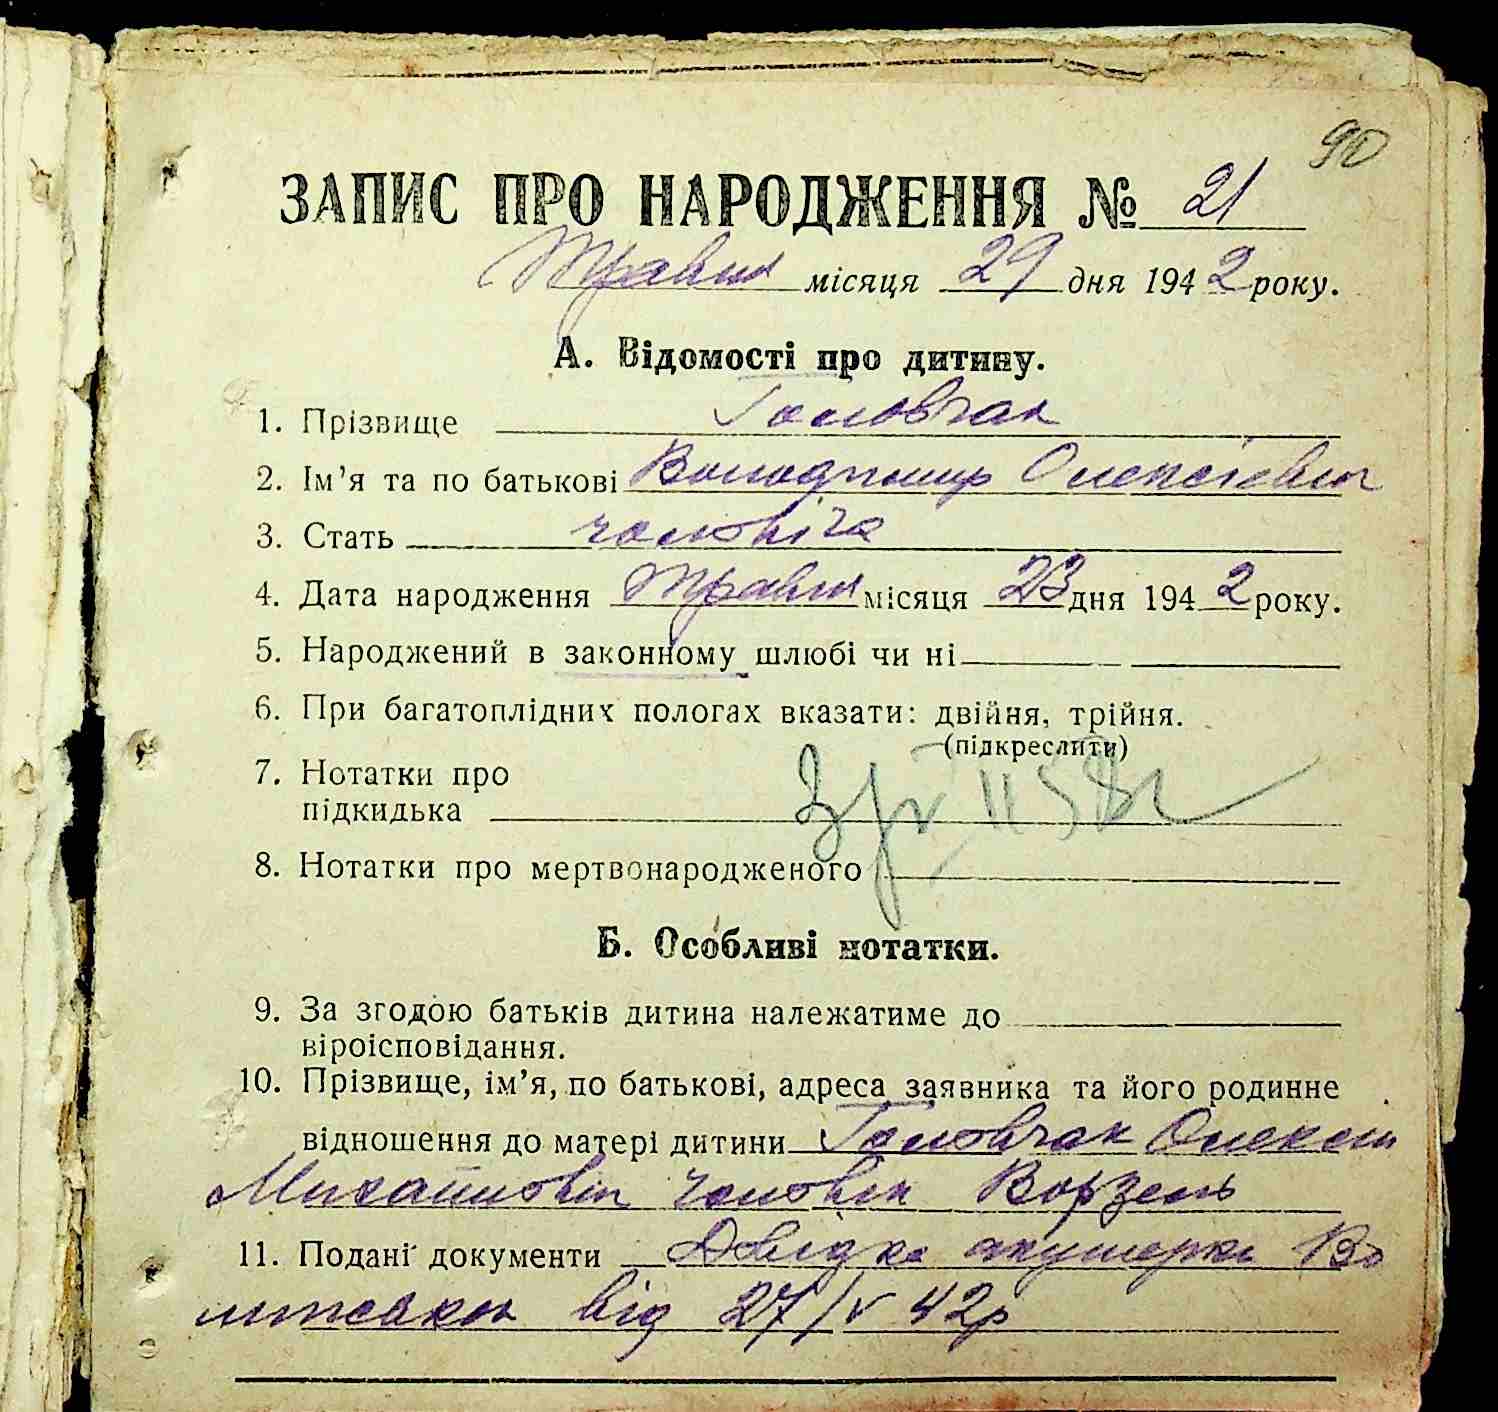 90
ЗАПИС ПРО НАРОДЖЕННЯ № 21
Травня місяця 29 дня 1942 року.
А. Відомості про дитину.
1. Прізвище Головчак
2. Ім'я та по батькові Володимир Олексієвич
3. Стать чоловіча
4. Дата народження Травня місяця 23 дня 1942 року.
5. Народжений в законному шлюбі чи ні
6. При багатоплідних пологах вказати: двійня, трійня.
(підкреслити)
7. Нотатки про
підкидька
8. Нотатки про мертвонародженого
Б. Особливі нотатки.
9. За згодою батьків дитина належатиме до
віроісповідання.
10. Прізвище, ім'я, по батькові, адреса заявника та його родинне
відношення до матері дитини Головчак Олексій
Михайлович чоловік Ворзель
11. Подані документи Довідка акушерки
від 27/V 42р